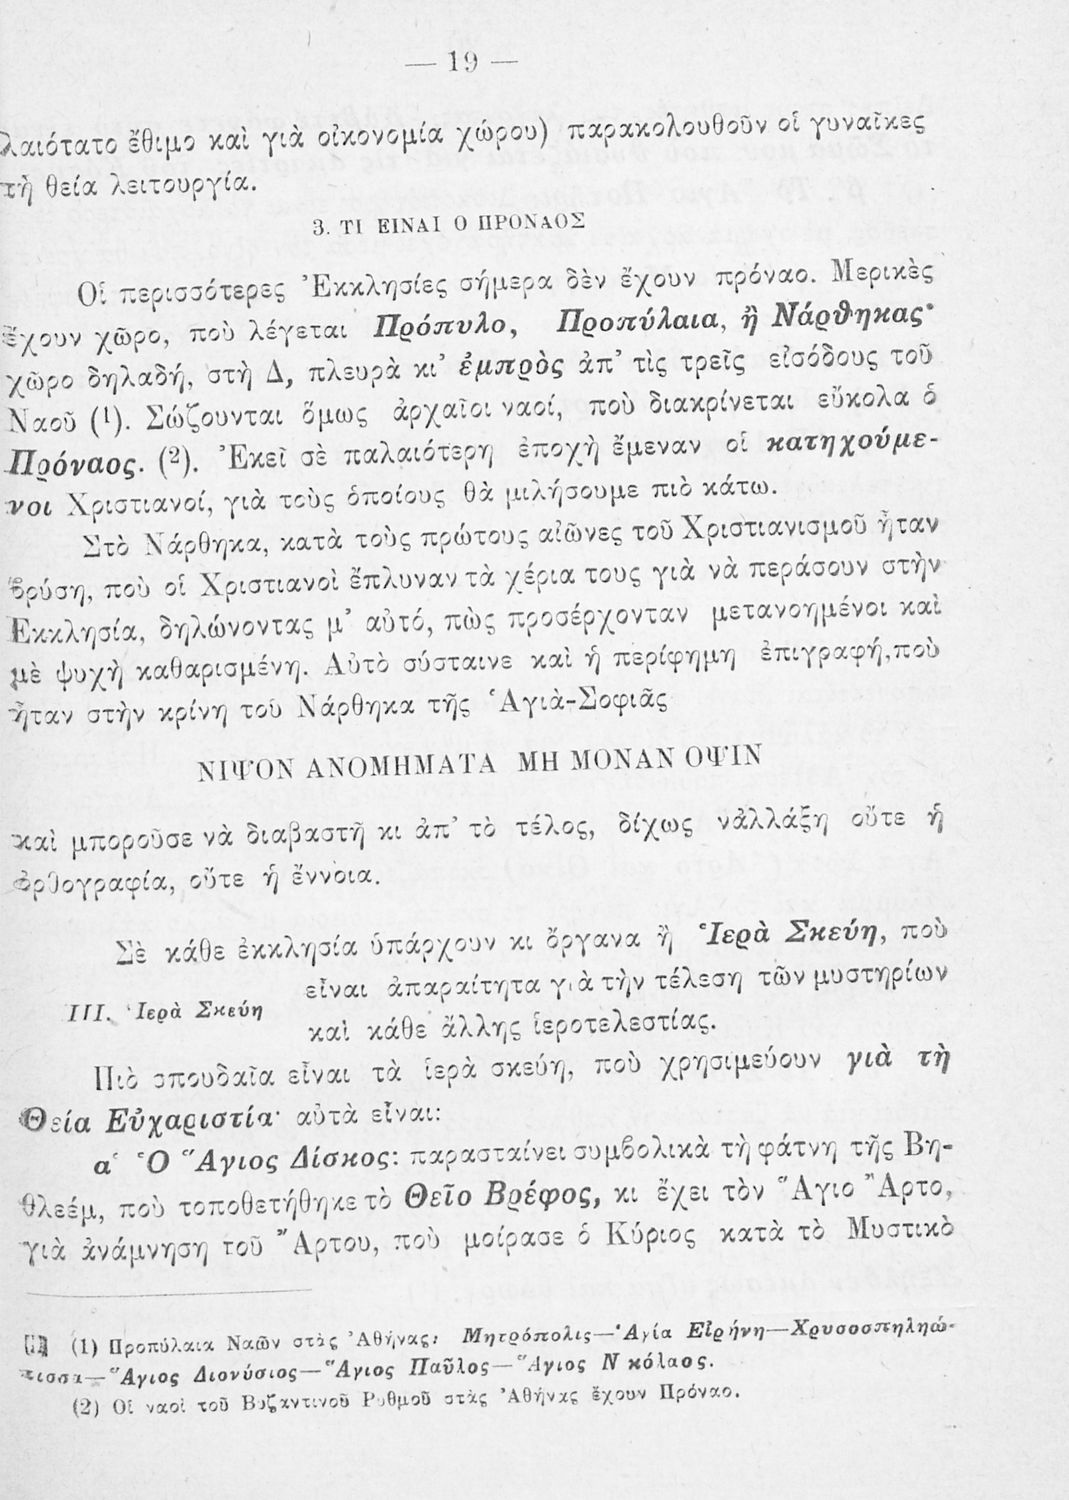 — 19 —
λαιότατο ἔθιμο καὶ γιὰ οἰκονομία χώρου) παρακολουθοῦν οἱ γυναῖκες
τὴ θεία λειτουργία.
3. ΤΙ ΕΙΝΑΙ Ο ΠΡΟΝΑΟΣ
Οἱ περισσότερες Ἐκκλησίες σήμερα δὲν ἔχουν πρόναο. Μερικὲς
ἔχουν χῶρο, ποὺ λέγεται Πρόπυλο, Προπύλαια, ἢ Νάρθηκας·
χῶρο δηλαδή, στὴ Δ, πλευρὰ κι’ ἐμπρὸς ἀπ’ τὶς τρεῖς εἰσόδους τοῦ
Ναοῦ (1). Σώζουνται ὅμως ἀρχαῖοι ναοί, ποὺ διακρίνεται εὔκολα ὁ
Πρόναος. (2). Ἐκεῖ σὲ παλαιότερη ἐποχὴ ἔμεναν οἱ κατηχούμε-
νοι Χριστιανοί, γιὰ τοὺς ὁποίους θὰ μιλήσουμε πιὸ κάτω.
Στὸ Νάρθηκα, κατὰ τοὺς πρώτους αἰῶνες τοῦ Χριστιανισμοῦ ἦταν
βρύση, ποὺ οἱ Χριστιανοὶ ἔπλυναν τὰ χέρια τους γιὰ νὰ περάσουν στὴν
Ἐκκλησία, δηλώνοντας μ’ αὐτό, πὼς προσέρχονταν μετανοημένοι καὶ
μὲ ψυχὴ καθαρισμένη. Αὐτὸ σύσταινε καὶ ἡ περίφημη ἐπιγραφή, ποὺ
ἦταν στὴν κρίνη τοῦ Νάρθηκα τῆς Ἁγιὰ-Σοφιᾶς
ΝΙΨΟΝ ΑΝΟΜΗΜΑΤΑ ΜΗ ΜΟΝΑΝ ΟΨΙΝ
καὶ μποροῦσε νὰ διαβαστῆ κι ἀπ’ τὸ τέλος, δίχως νἀλλάξη οὔτε ἡ
ὀρθογραφία, οὔτε ἡ ἔννοια.
Σὲ κάθε ἐκκλησία ὑπάρχουν κι ὄργανα ἢ Ἱερὰ Σκεύη, ποὺ
εἶναι ἀπαραίτητα γιὰ τὴν τέλεση τῶν μυστηρίων
III. Ἱερὰ Σκεύη
καὶ κάθε ἄλλης ἱεροτελεστίας.
Πιὸ σπουδαῖα εἶναι τὰ ἱερὰ σκεύη, ποὺ χρησιμεύουν γιὰ τὴ
Θεία Εὐχαριστία· αὐτὰ εἶναι:
α‘ Ὁ Ἅγιος Δίσκος: παρασταίνει συμβολικὰ τὴ φάτνη τῆς Βη-
θλεέμ, ποὺ τοποθετήθηκε τὸ Θεῖο Βρέφος, κι ἔχει τὸν Ἅγιο Ἄρτο,
γιὰ ἀνάμνηση τοῦ Ἄρτου, ποὺ μοίρασε ὁ Κύριος κατὰ τὸ Μυστικὸ
(1) Προπύλαια Ναῶν στὰς Ἀθήνας: Μητρόπολις—Ἁγία Εἰρήνη—Χρυσοσπηληώ-
τισσα—Ἅγιος Διονύσιος—Ἅγιος Παῦλος—Ἅγιος Ν κόλαος.
(2) Οἱ ναοὶ τοῦ Βυζαντινοῦ Ρυθμοῦ στὰς Ἀθήνας ἔχουν Πρόναο.